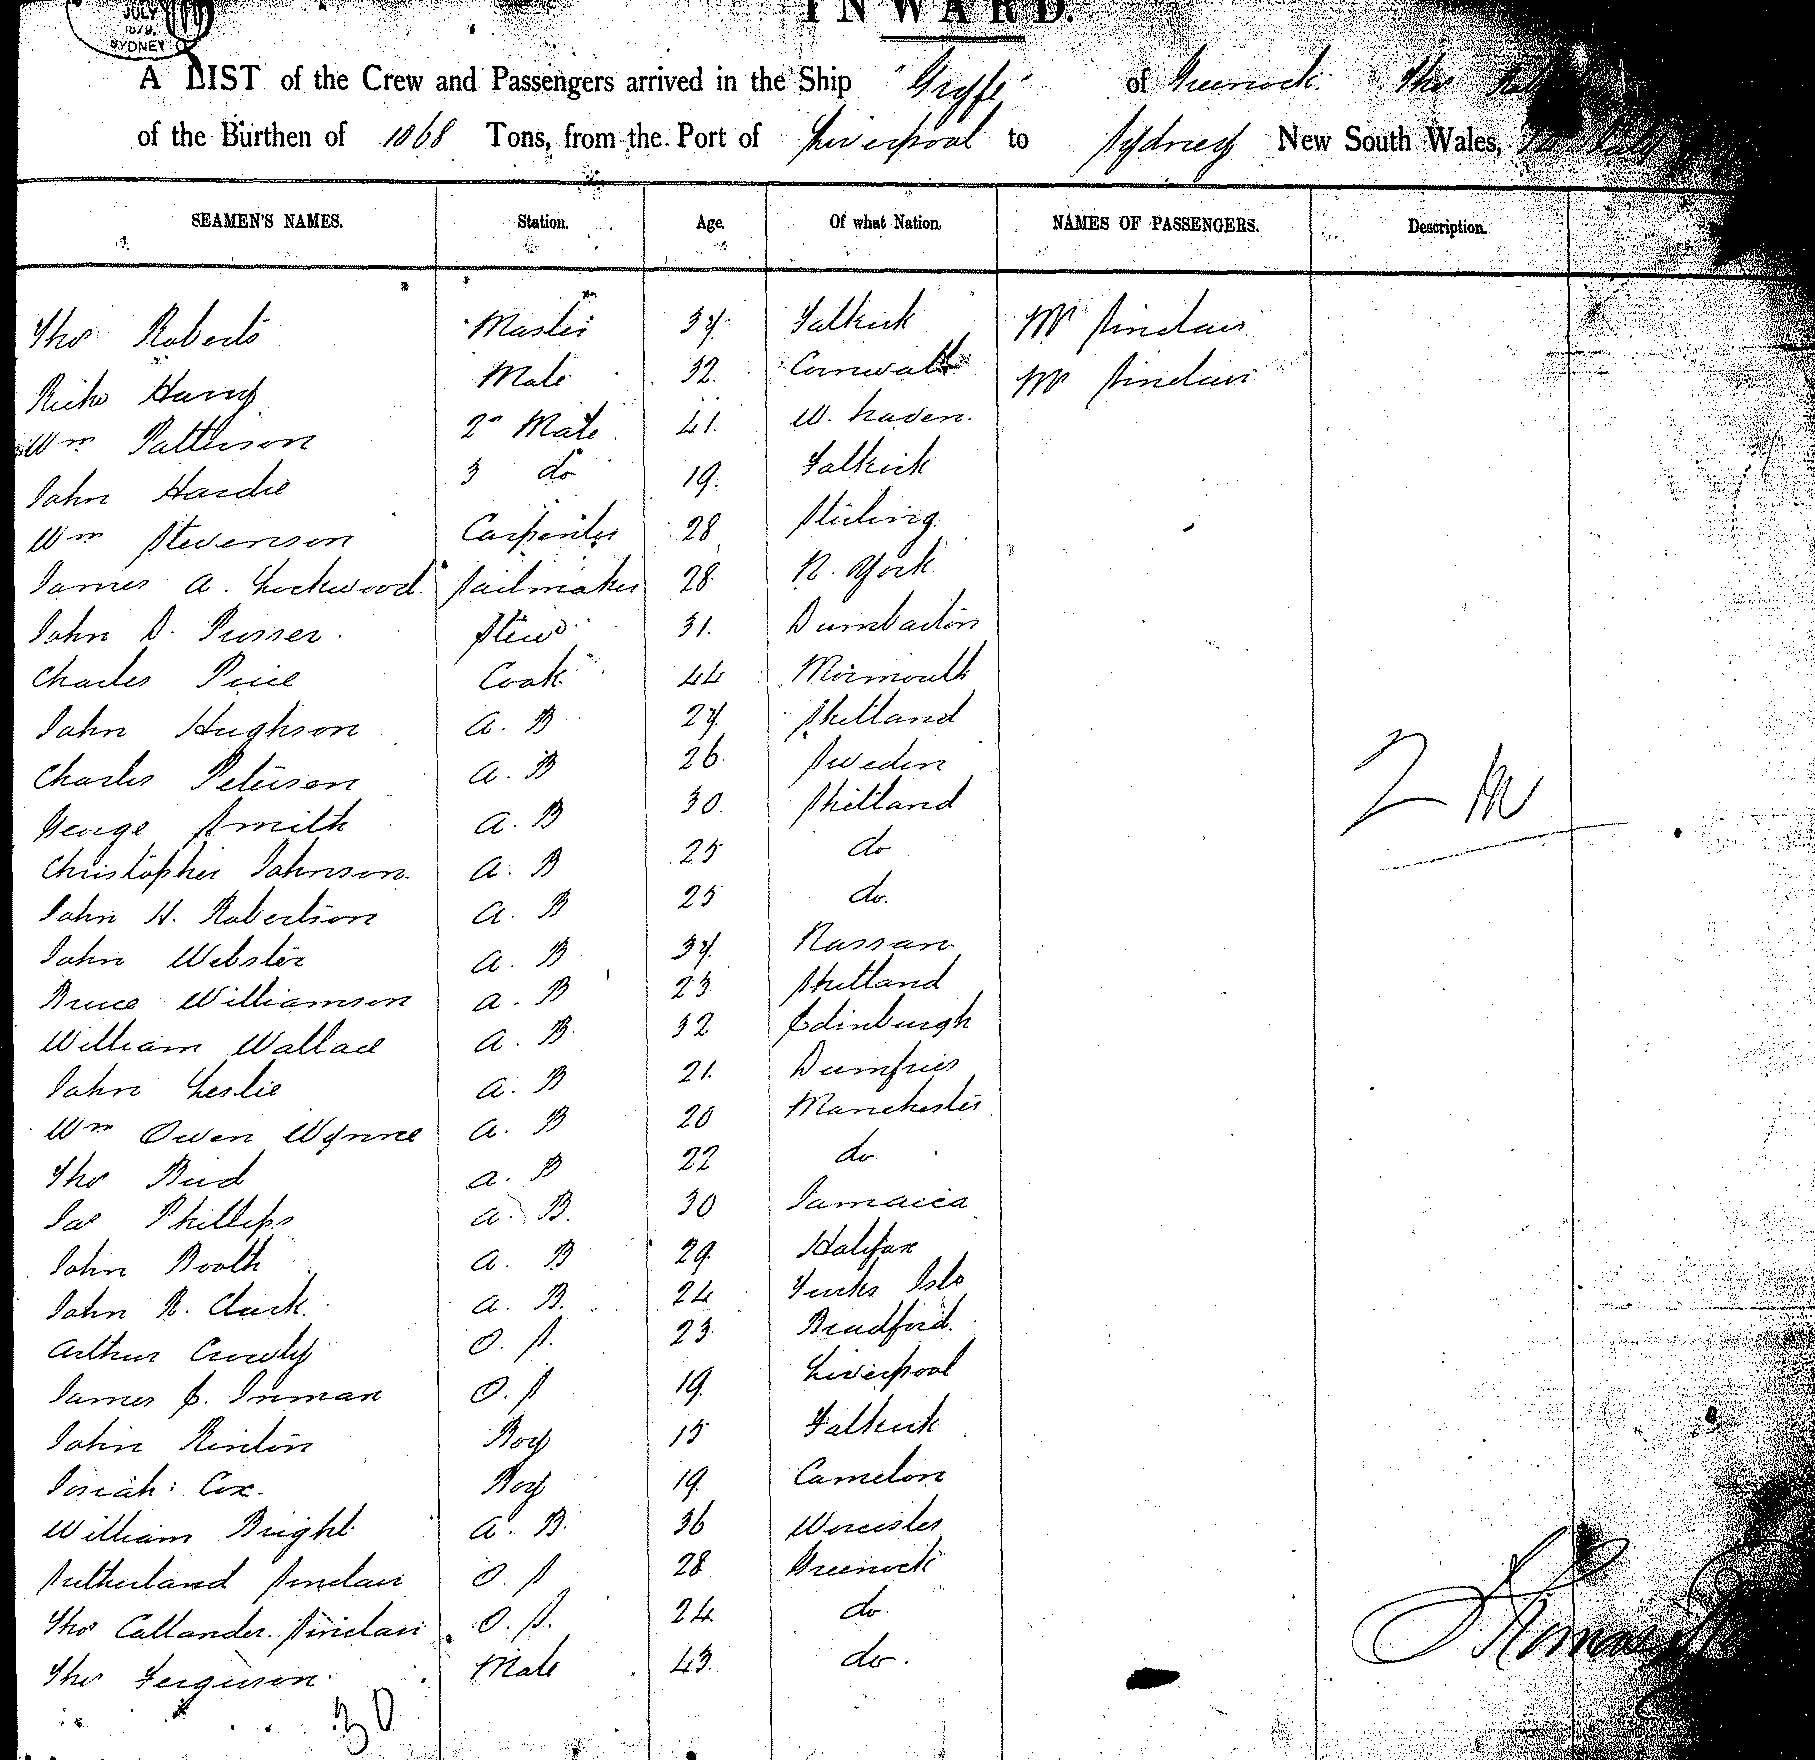 JULY
1879.
SYDNEY
INWARD.
A LIST of the Crew and Passengers arrived in the Ship "Gryfe" of Greenock. Tho
of the Burthen of 1068 Tons, from the Port of Liverpool to Sydney New South Wales,
SEAMEN'S NAMES. Station. Age. Of what Nation. NAMES OF PASSENGERS. Description.
Thos Roberts Master 37 Falkirk Mr Sinclair
Richd Harry Mate 32 Cornwall Mr Sinclair
Wm Patterson 2d Mate 41. W. haven.
John Hardie 3 do 19. Falkirk
Wm Stevenson Carpenter 28 Stirling
James A. Lockwood Sailmaker 28 N. York
John D. Purser. Stewd 31. Dumbarton
Charles Price Cook 44 Monmouth
John Hughson A. B 27 Shetland
Charles Peterson A. B 26 Sweden
George Smith A. B 30 Shetland
Christopher Johnson A. B 25 do
John H. Robertson A. B 25 do.
John Webster A. B 37 Nassau
Bruce Williamson A. B 23 Shetland
William Wallace A. B. 32 Edinburgh
John Leslie A. B 21. Dumfries
Wm Owen Wynne A. B 20 Manchester
Thos A. B 22 do
Jas Phillips A. B. 30 Jamaica
John Booth A. B 29 Halifax
John R. Clark A. B. 24 Turks Isld
Arthur O. S. 23 Bradford.
James E. Inman O. S 19. Liverpool
John Boy 15 Falkirk
Josiah: Cox. Boy 19 Camelon
William Bright A. B. 36 Worcester
Sutherland Sinclair O. S 28 Greenock
Thos Callander Sinclair O. S. 24 do.
Thos Ferguson. Mate 43 do.
30
2
Thomas